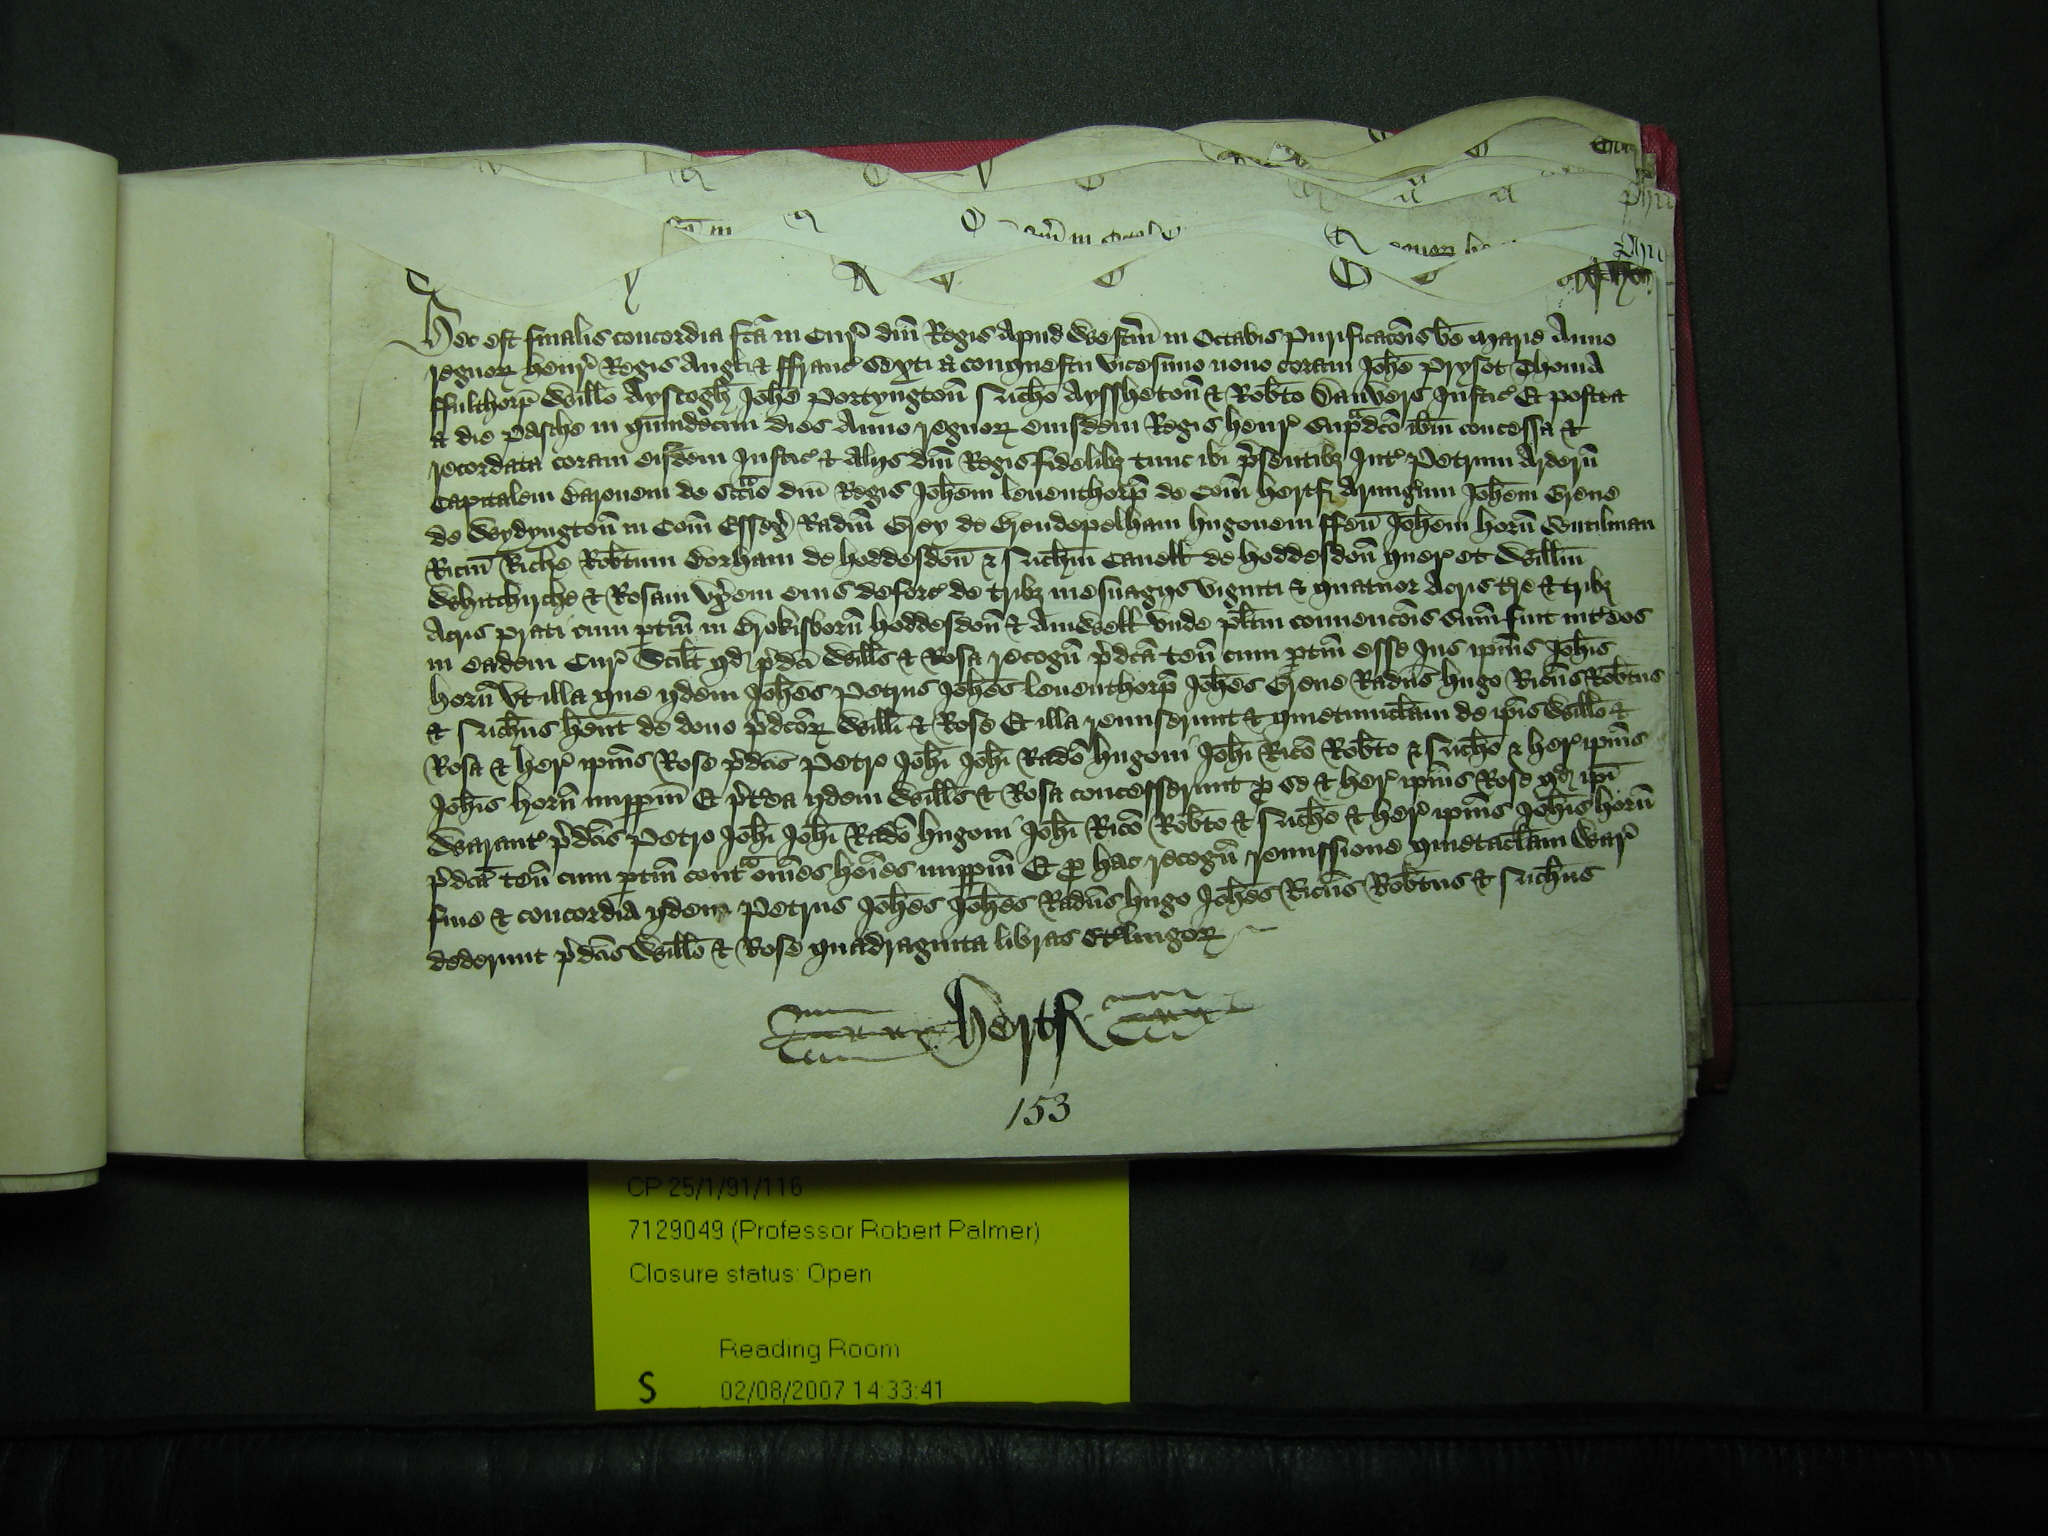 Hec est finalis concordia fca in Cur dni Regis apud Westm in Octabis Purificacois be Marie Anno
regnor Henr Regis Angl & ffranc Sexti a conquestu vicesimo nono coram Johe Prysot Thoma
ffulthorp Willo Ayscogh Johe Portyngton Nicho Ayssheton & Robto Danvers Justic Et postea
a die Pasche in quindecim dies Anno regnor eiusdem Regis Henr supadco ibm concessa &
recordata coram eisdem Justic & alijs dni Regis fidelibz tunc ibi psentibz Int Petrum Ardern
Capitalem Baronem de Sccio dni Regis Johem Leventhorp de Com Hertf Armigum Johem Grene
de Wydyngton in Com Essex Radm Grey de Brendepelham Hugonem ffen Johem Horn Gentilman
Ricm Riche Robtum Gorham de Hoddesdon & Nichm Cavell de Hoddesdon quer et Willm
Whitchirche & Rosam uxem eius deforc de tribz mesuagijs viginti & quatuor acris tre & tribz
acris prati cum ptin in Brokisborn Hoddesdon & Amwell Unde plitm convencois sum fuit int eos
in eadem Cur Scilt qd pdci Wills & Rosa recogn pdca ten cum ptin esse Jus ipius Johis
Horn Ut illa que ydem Johes Petrus Johes Leventhorp Johes Grene Radus Hugo Ricus Robtus
& Nichus hent de dono pdcor Willi & Rose Et illa remiserunt & quietumclam de ipis Willo &
Rosa & her ipius Rose pdcis Petro Johi Johi Rado Hugoni Johi Rico Robto & Nicho & her ipius
Johis Horn imppm Et ptea ydem Wills & Rosa concesserunt p se & her ipius Rose qd ipi
Warant pdcis Petro Johi Johi Rado Hugoni Johi Rico Robto & Nicho & her ipius Johis Horn
pdca ten cum ptin conta omes hoies imppm Et p hac recogn remissione quietaclam War
fine & concordia ydem Petrus Johes Johes Radus Hugo Johes Ricus Robtus & Nichus
dederunt pdcis Willo & Rose quadraginta libras Stlingor
Hertf
153
CP 25/1/91/116
7129049 (Professor Robert Palmer)
Closure status: Open
Reading Room
S 02/08/2007 14:33:41